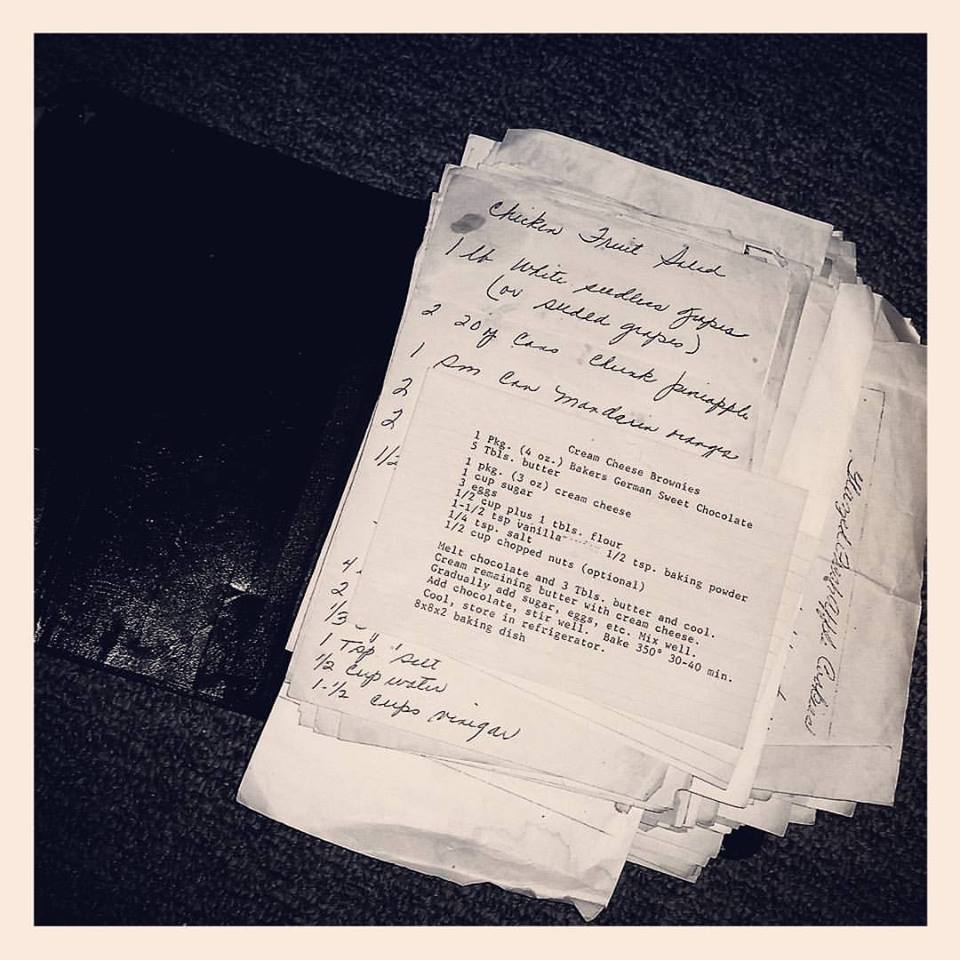 Chicken Fruit Salad
1 lb White seedless grapes
(or seeded grapes)
2 20 oz Cans Chunk pineapple
1 Sm Can Mandarin oranges
2
2
1/2
4
2
1/3
1 Tsp salt
1/2 cup water
1-1/2 cups vinegar
Cream Cheese Brownies
1 Pkg. (4 oz.) Bakers German Sweet Chocolate
5 Tbls. butter
1 pkg. (3 oz) cream cheese
1 cup sugar
3 eggs
1/2 cup plus 1 tbls. flour
1-1/2 tsp vanilla------- 1/2 tsp. baking powder
1/4 tsp. salt
1/2 cup chopped nuts (optional)
Melt chocolate and 3 Tbls. butter and cool.
Cream remaining butter with cream cheese.
Gradually add sugar, eggs, etc. Mix well.
Add chocolate, stir well. Bake 350° 30-40 min.
Cool, store in refrigerator.
8x8x2 baking dish
Pineapple Cookies